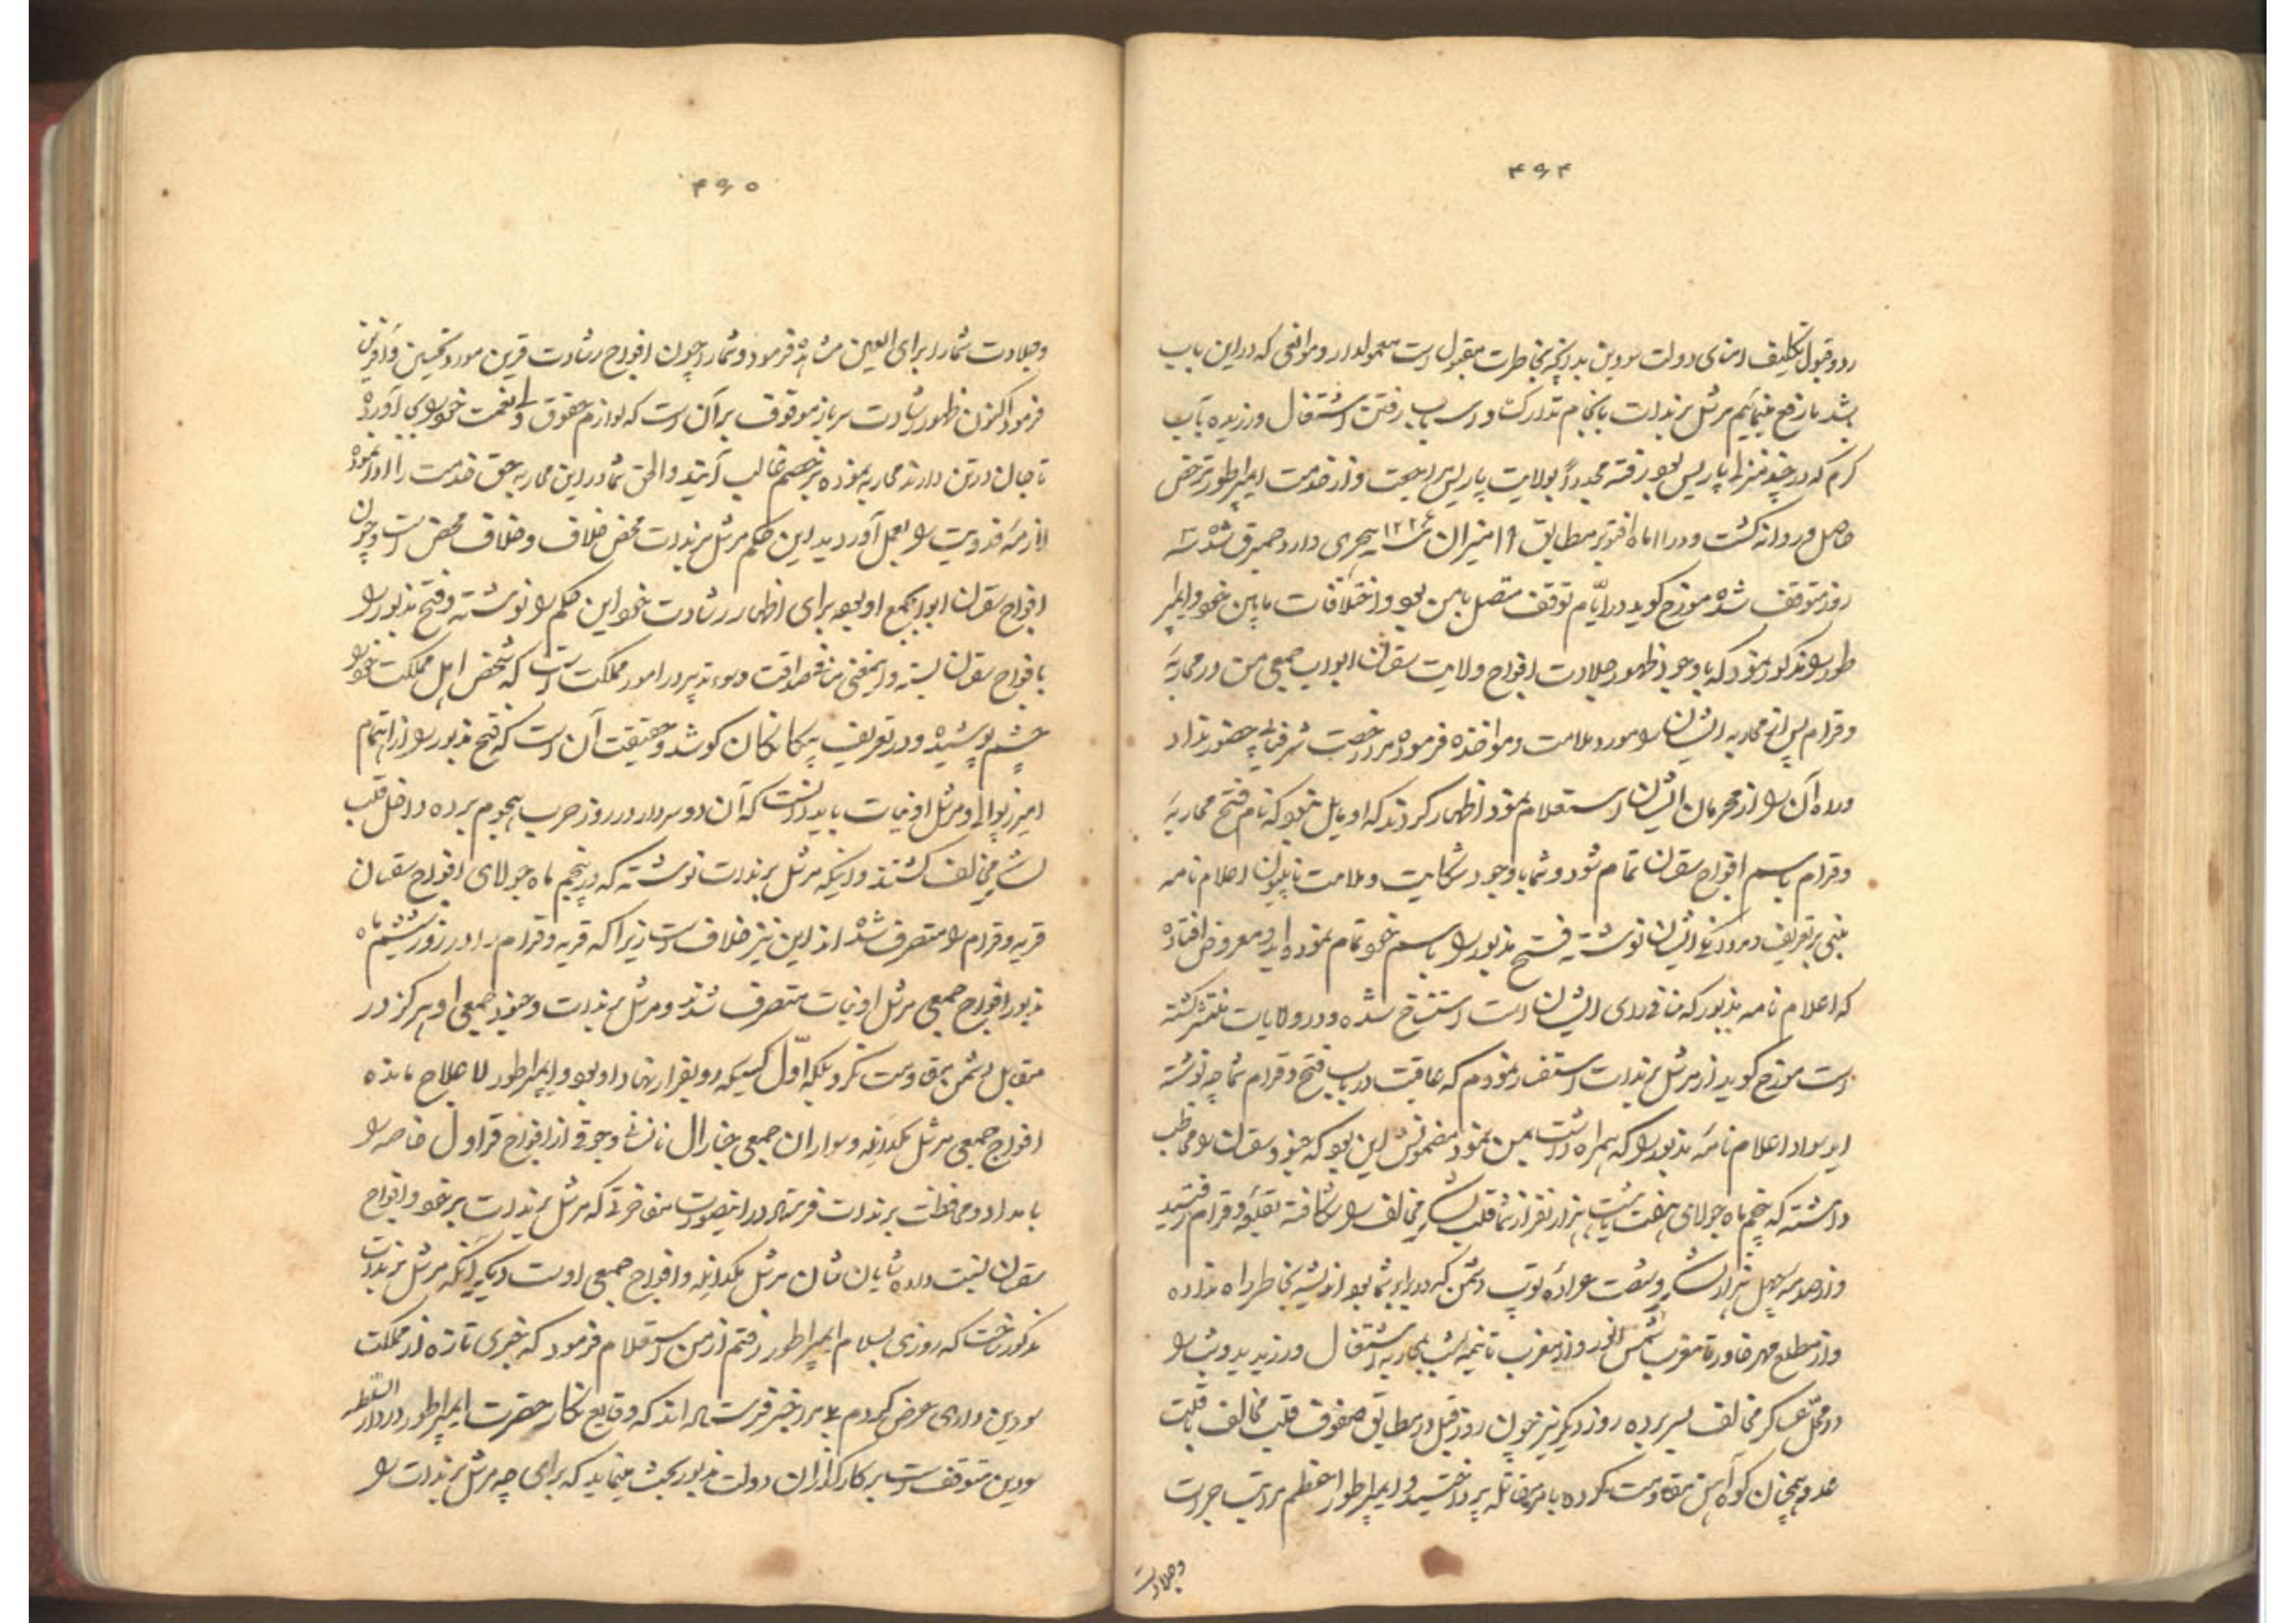 ۴۹۴
رد و قبول تکلیف امنای دولت سودین بدانچه بخاطرت مقبول است معمولدار و موانعی که در این باب
باشد ما رفع مینمائیم مرشل برندات بانجام تدارکات و اسباب رفتن اشتغال ورزیده بآب
کرم که در چند منزلی پاریس بود رفته مجدداً بولایت پاریس مراجعت و از خدمت ایمپراطور مرخصی
حاصل و روانه کشت و در ۱۱ ماه اقتوبر مطابق میزان سنه ۱۲۲۶ هجری وارد شده سه
روز متوقف شده مورخ کوید در ایام توقف متصل با من بود و اختلافات مابین خود و ایمپرا
طور را مذکور نمود که با وجود ظهور جلادت افواج ولایت سقسان ابواب جمعی من در محاربه
وقرام پس از محاربه ایشان را مورد ملامت و مواخذه فرموده مرا رخصت شرفیابی حضور نداد
و راه آن را از محرمان ایشان استعلام نمودم اظهار کردند که او مایل نبود که نام فتح محاربه
وقرام باسم افواج سقسان تمام شود و شما با وجود شکایت و ملامت ناپلیون اعلام نامه
مبنی بر تعریف و مردانکی ایشان نوشته فتح مذبور را باسم خود تمام نموده اید و معروض افتاده
که اعلام نامه مذبور که منافی رای ایشان است استنساخ شده و در ولایات منتشر کشته
است مورخ کوید از مرشل برندات استفسار نمودم که عاقبت در باب فتح وقرام شما چه نوشته
اید سواد اعلام نامه مذبور را که همراه داشت بمن نمود مضمونش این بود که جنود سقسان را مخاطب
داشته که پنجم ماه جولای هفت یا هشت هزار نفر از شما قلب لشکر مخالف را شکافته بقریه وقرام رسیدید
و از صدمه چهل هزار لشکر و شصت عراده توپ دشمن که در برابر شما بود اندیشه بخاطر راه نداده
و از مطلع مهر خاور تا مغرب شمس انور و از مغرب تا نیمه شب بمحاربه اشتغال ورزیدید و شب را
در محل عسکر مخالف بسر برده روز دیکر نیز چون روز قبل در مطابق صفوف قلب مخالف ثابت
عدو همچنان کوه آهن مقاومت کرده بامر مقاتله پرداختید و ایمپراطور اعظم مراتب جرات
وجلادت
۴۹۵
و جلادت شما را برای العین مشاهده فرمود و شما را چون افواج رشادت قرین مورد تحسین و آفرین
فرمود اکنون ظهور رشادت سرباز موقوف بر آن است که لوازم حقوق ولی نعمت خود را بجای آورده
تا جان در تن دارند محاربه نموده بر خصم غالب آیند و الحق شما در این محاربه حق خدمت را ادا نموده
لازمه فدویت را بعمل آوردید این حکم مرشل برندات محض خلاف و خلاف محض است و چون
افواج سقسان ابوابجمع او بود برای اظهار رشادت خود این حکم را نوشته و فتح مذبور را
بافواج سقسان بسته و اینمعنی منافی صداقت و سوء تدبیر در امور مملکت است که شخص اهل مملکت خود را
چشم پوشیده و در تعریف بیکانکان کوشد و حقیقت آن است که فتح مذبور را از اهتمام
امیر زپوالی و مرشل اونیات باید دانست که آن دو سردار در روز حرب هجوم برده داخل قلب
لشکر مخالف کشتند و اینکه مرشل برندات نوشته که در پنجم ماه جولای افواج سقسان
قریه وقرام را متصرف شده اند این نیز خلاف است زیرا که قریه وقرام را در روز ششم ماه
مذبور افواج جمعی مرشل اونیات متصرف شدند و مرشل برندات و جنود جمعی او هرکز در
مقابل دشمن مقاومت نکرد بلکه اول کسیکه رو بفرار نهاد او بود و ایمپراطور لاعلاج مانده
افواج جمعی مرشل مکدانله و سواران جمعی جنارال نانسانی و جوقی از افواج قراول خاصه را
بامداد و محافظت برندات فرستاد در اینصورت مفاخرتی که مرشل برندات بر خود و افواج
سقسان نسبت داده شایان شان مرشل مکدانله و افواج جمعی اوست دیکر آنکه مرشل برندات
مذکور ساخت که روزی بسلام ایمپراطور رفتم از من استعلام فرمود که خبری تازه از مملکت
سودین داری عرض کردم بمن خبر فرستاده اند که وقایع نکار حضرت ایمپراطور در دارالسلطنه
سودین متوقف است بر کارکذاران دولت مذبور بحث مینماید که برای چه مرشل برندات را